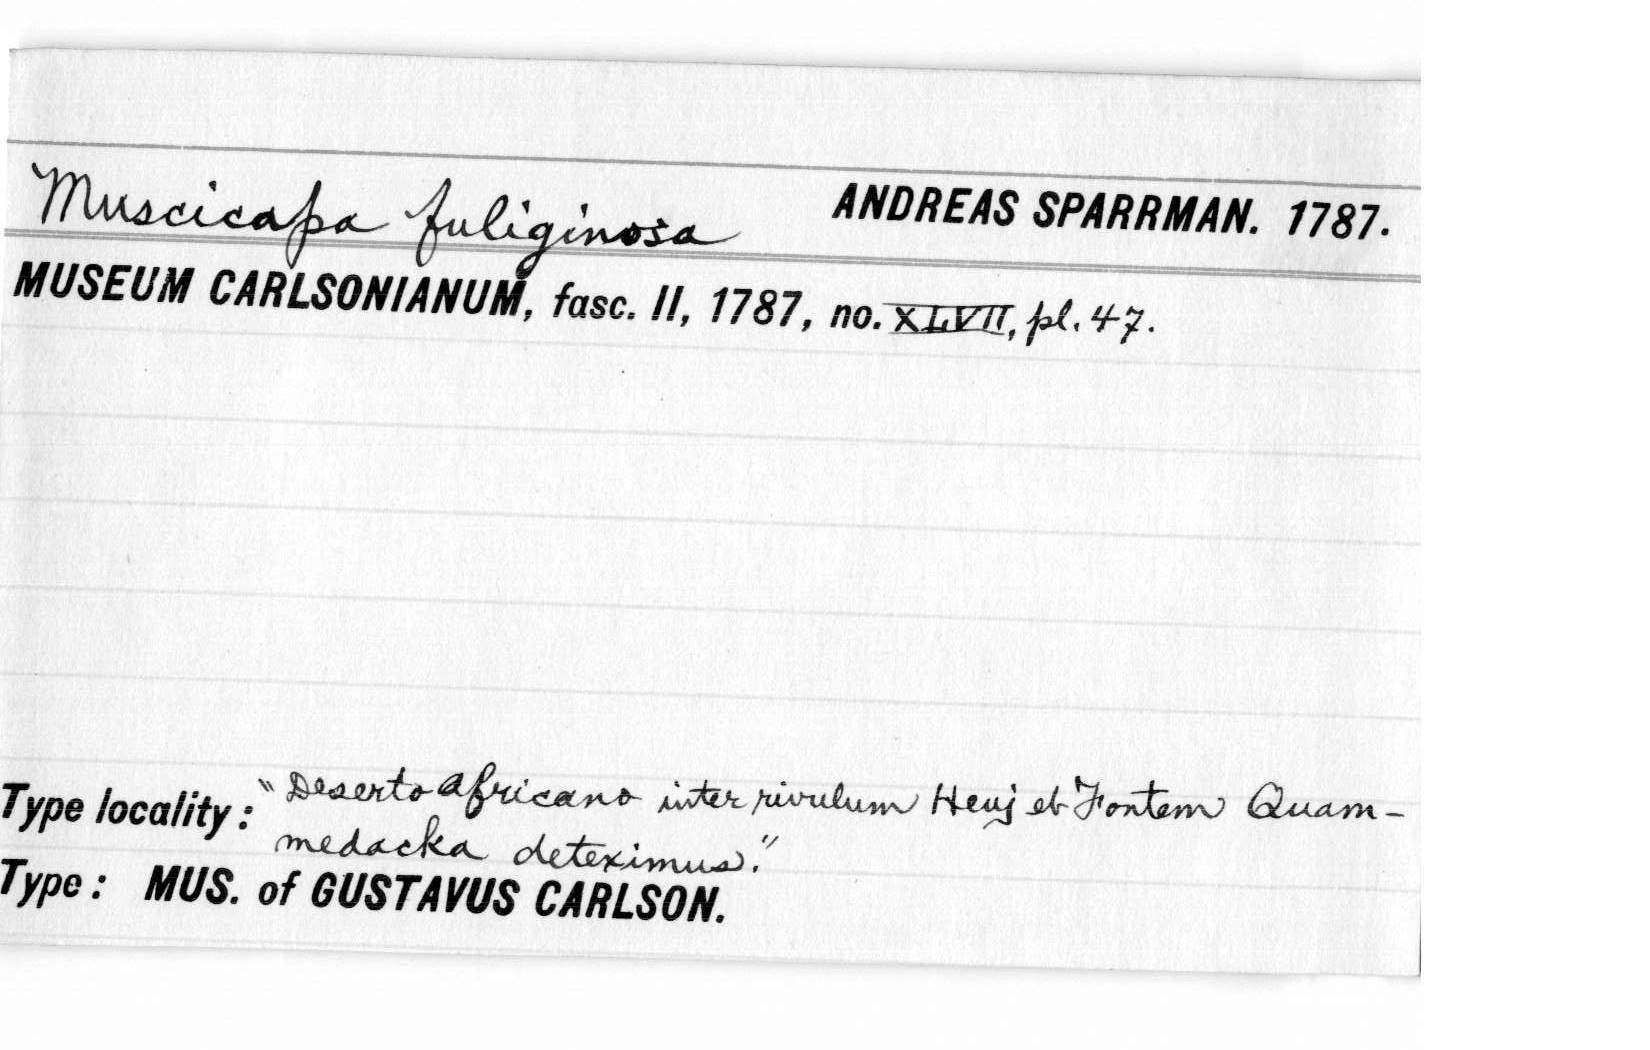 Muscicapa fuliginosa ANDREAS SPARRMAN. 1787.
MUSEUM CARLSONIANUM, fasc. II, 1787, no. XLVII, pl. 47.
Type locality: "Deserto africano inter rivulum Heuj et Fontem Quam-
medacka deteximus."
Type: MUS. of GUSTAVUS CARLSON.